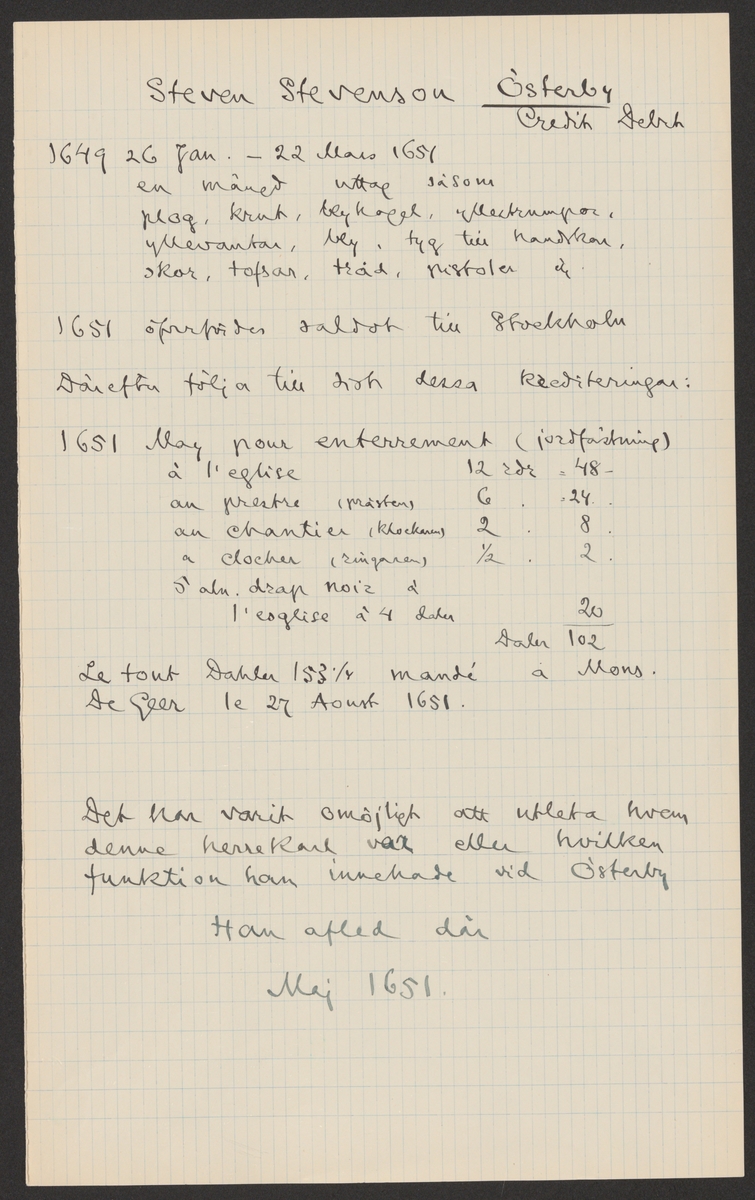 Steven Stevenson Österby
Credit Debet
1649 26 Jan. – 22 Mars 1651
en mängd uttag såsom
plog, krut, blyhagel, yllestrumpor,
yllevantar, bly, tyg till handskar,
skor, tofsar, tråd, pistoler
1651 öfverfördes saldot till Stockholm
Därefter följa till sist dessa krediteringar:
1651 May pour enterrement (jordfästning)
à l'eglise 12 rdr = 48 –
au prestre (prästen) 6 . =24 .
au chantier (klockaren) 2 . 8 .
a clocher (ringaren) ½ . 2 .
5 aln. drap noir à
l'esglise à 4 daler 20
Daler 102
Le tout Dahler 153 1/4 mandé a Mons.
De Geer le 27 Aoust 1651.
Det har varit omöjligt att utleta hvem
denne herrekarl var eller hvilken
funktion han innehade vid Österby
Han afled där
Maj 1651.